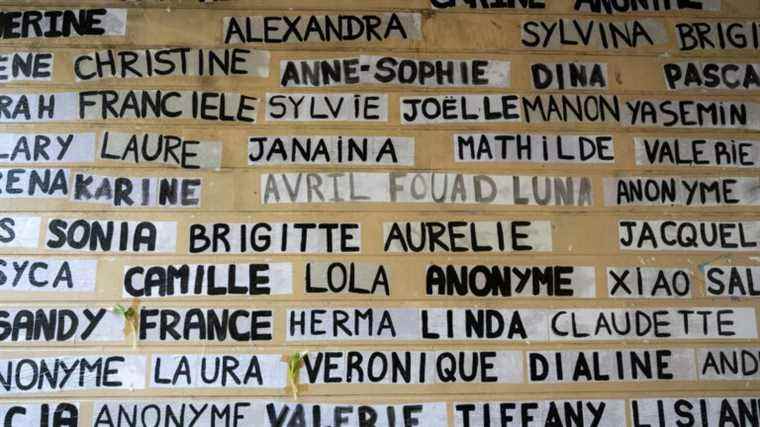 ALEXANDRA SYLVINA
CHRISTINE ANNE-SOPHIE DINA PASCA
RAH FRANCIELE SYLVIE JOËLLE MANON YASEMIN
LARY LAURE JANAINA MATHILDE VALERIE
RENA KARINE AVRIL FOUAD LUNA ANONYME
S SONIA BRIGITTE AURELIE JACQUEL
SYCA CAMILLE LOLA ANONYME XIAO SAL
SANDY FRANCE HERMA LINDA CLAUDETTE
NONYME LAURA VERONIQUE DIALINE AND
ANONYME VALERIE TIFFANY LISIAN